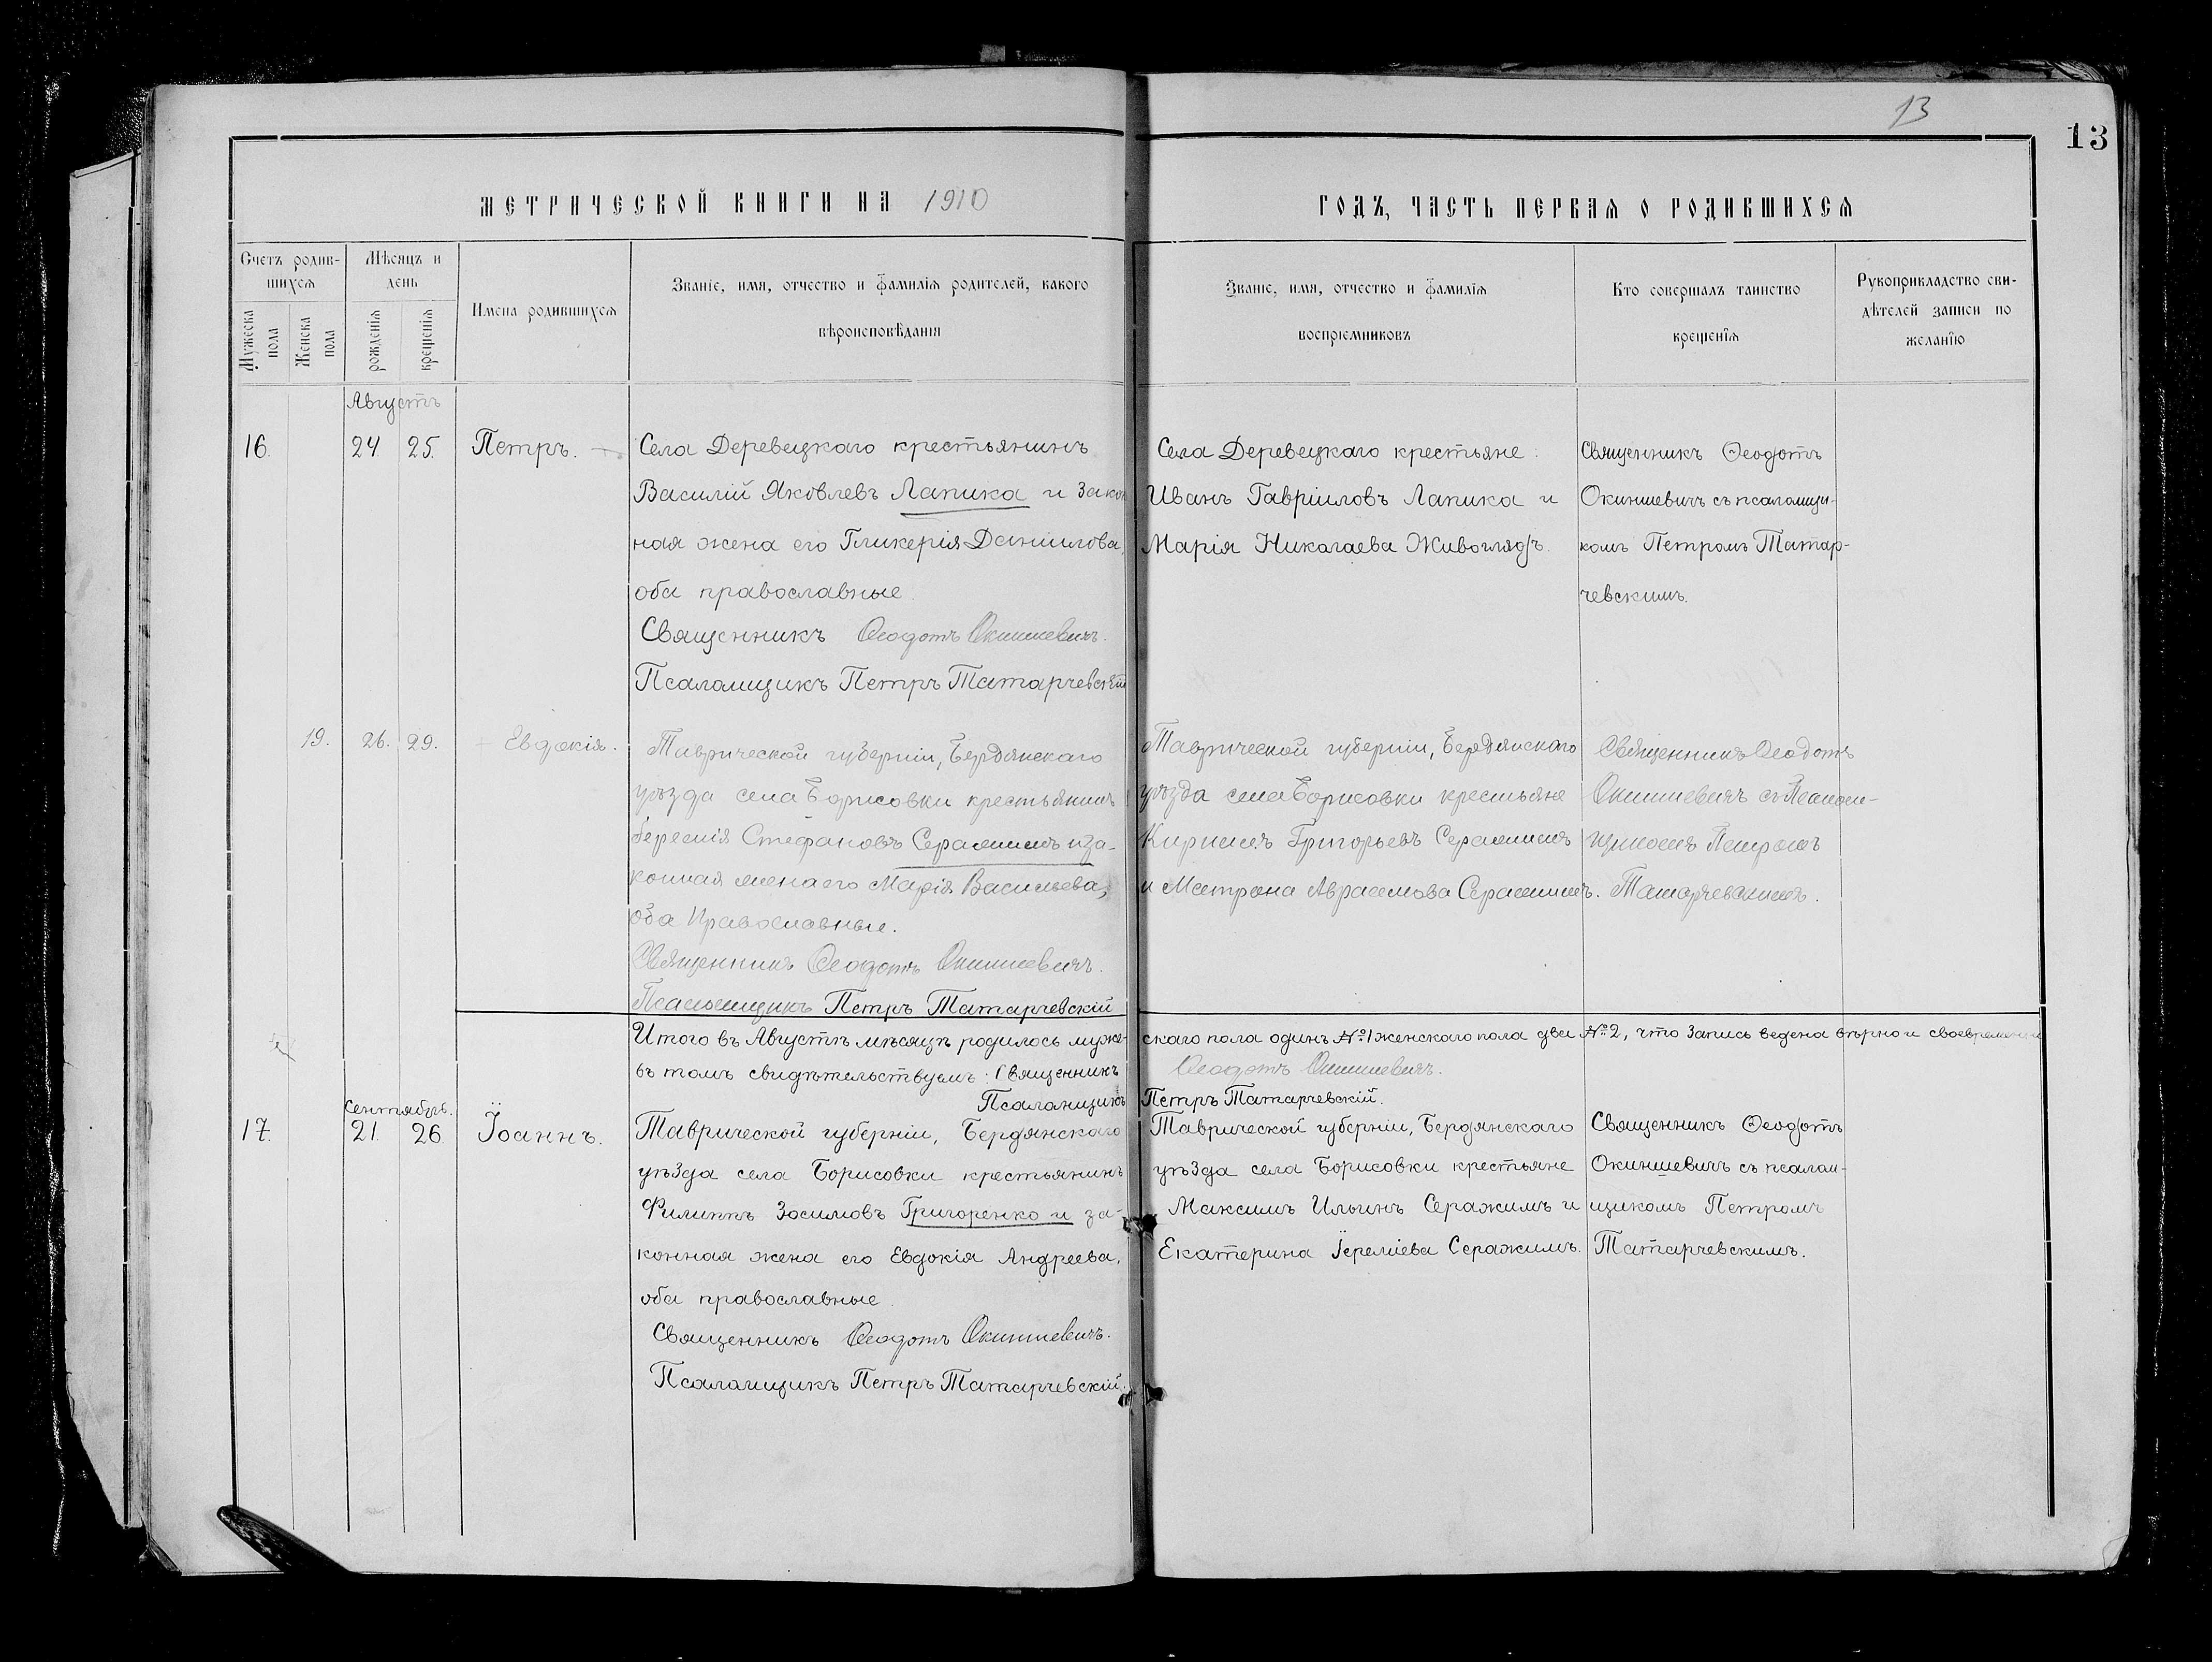 13
13
МЕТРИЧЕСКОЙ КНИГИ НА 1910
ГОДЪ, ЧАСТЬ ПЕРВАЯ О РОДИВШИХСЯ
Счетъ родив-
шихся
Мужеска пола
Женска пола
Мѣсяцъ и
день
рожденія
крещенія
Имена родившихся
Званіе, имя, отчество и фамилія родителей, какого
вѣроисповѣданія
Званіе, имя, отчество и фамилія
воспріемниковъ
Кто совершалъ таинство
крещенія
Рукоприкладство сви-
дѣтелей записи по
желанію
Августъ
16. 24. 25. Петръ.
Села Деревецкаго крестьянинъ
Василій Яковлевъ Лапика и закон
ная жена его Гликерія Даніилова,
оба православные.
Священникъ Ѳеодотъ Окиншевичъ.
Псаломщикъ Петръ Татарчевскій
Села Деревецкаго крестьяне:
Иванъ Гавріиловъ Лапика и
Марія Николаева Живоглядъ.
Священникъ Ѳеодотъ
Окиншевичъ съ псаломщи-
комъ Петромъ Татар-
чевскимъ.
19. 26. 29. Евдокія.
Таврической губерніи, Бердянскаго
уѣзда села Борисовки крестьянинъ
Іеремія Стефановъ Серажимъ и за-
конная жена его Марія Васильева,
оба Православные.
Священникъ Ѳеодотъ Окиншевичъ.
Псаломщикъ Петръ Татарчевскій
Таврической губерніи, Бердянскаго
уѣзда села Борисовки крестьяне
Кириллъ Григорьевъ Серажимъ
и Матрона Авраамова Серажимъ.
Священникъ Ѳеодотъ
Окиншевичъ съ Псалом-
щикомъ Петромъ
Татарчевскимъ.
Итого въ Августѣ мѣсяцѣ родилось муже-
скаго пола одинъ №1 женскаго пола две №2, что запись ведена вѣрно и своевременно
въ томъ свидѣтельствуемъ: Священникъ
Ѳеодотъ Окиншевичъ.
Псаломщикъ
Петръ Татарчевскій.
Сентябрь.
17. 21. 26. Іоаннъ.
Таврической губерніи, Бердянскаго
уѣзда села Борисовки крестьянинъ
Филиппъ Зосимовъ Григоренко и за-
конная жена его Евдокія Андреева,
оба православные.
Священникъ Ѳеодотъ Окиншевичъ.
Псаломщикъ Петръ Татарчевскій.
Таврической губерніи, Бердянскаго
уѣзда села Борисовки крестьяне
Максимъ Ильинъ Серажимъ и
Екатерина Іереміева Серажимъ.
Священникъ Ѳеодотъ
Окиншевичъ съ псалом-
щикомъ Петромъ
Татарчевскимъ.